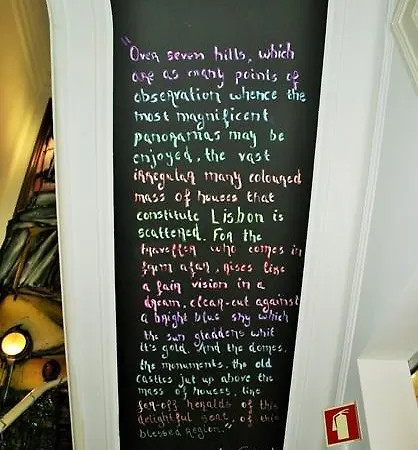 "Over seven hills, which
are as many points of
observation whence the
most magnificent
panoramas may be
enjoyed, the vast
irregular many coloured
mass of houses that
constitute Lisbon is
scattered. For the
traveller who comes in
from afar, rises like
a fair vision in a
dream, clear-cut against
a bright blue sky which
the sun gladdens whit
it's gold. And the domes,
the monuments, the old
castles jut up above the
mass of houses, like
far-off heralds of this
delightful seat, of this
blessed region."